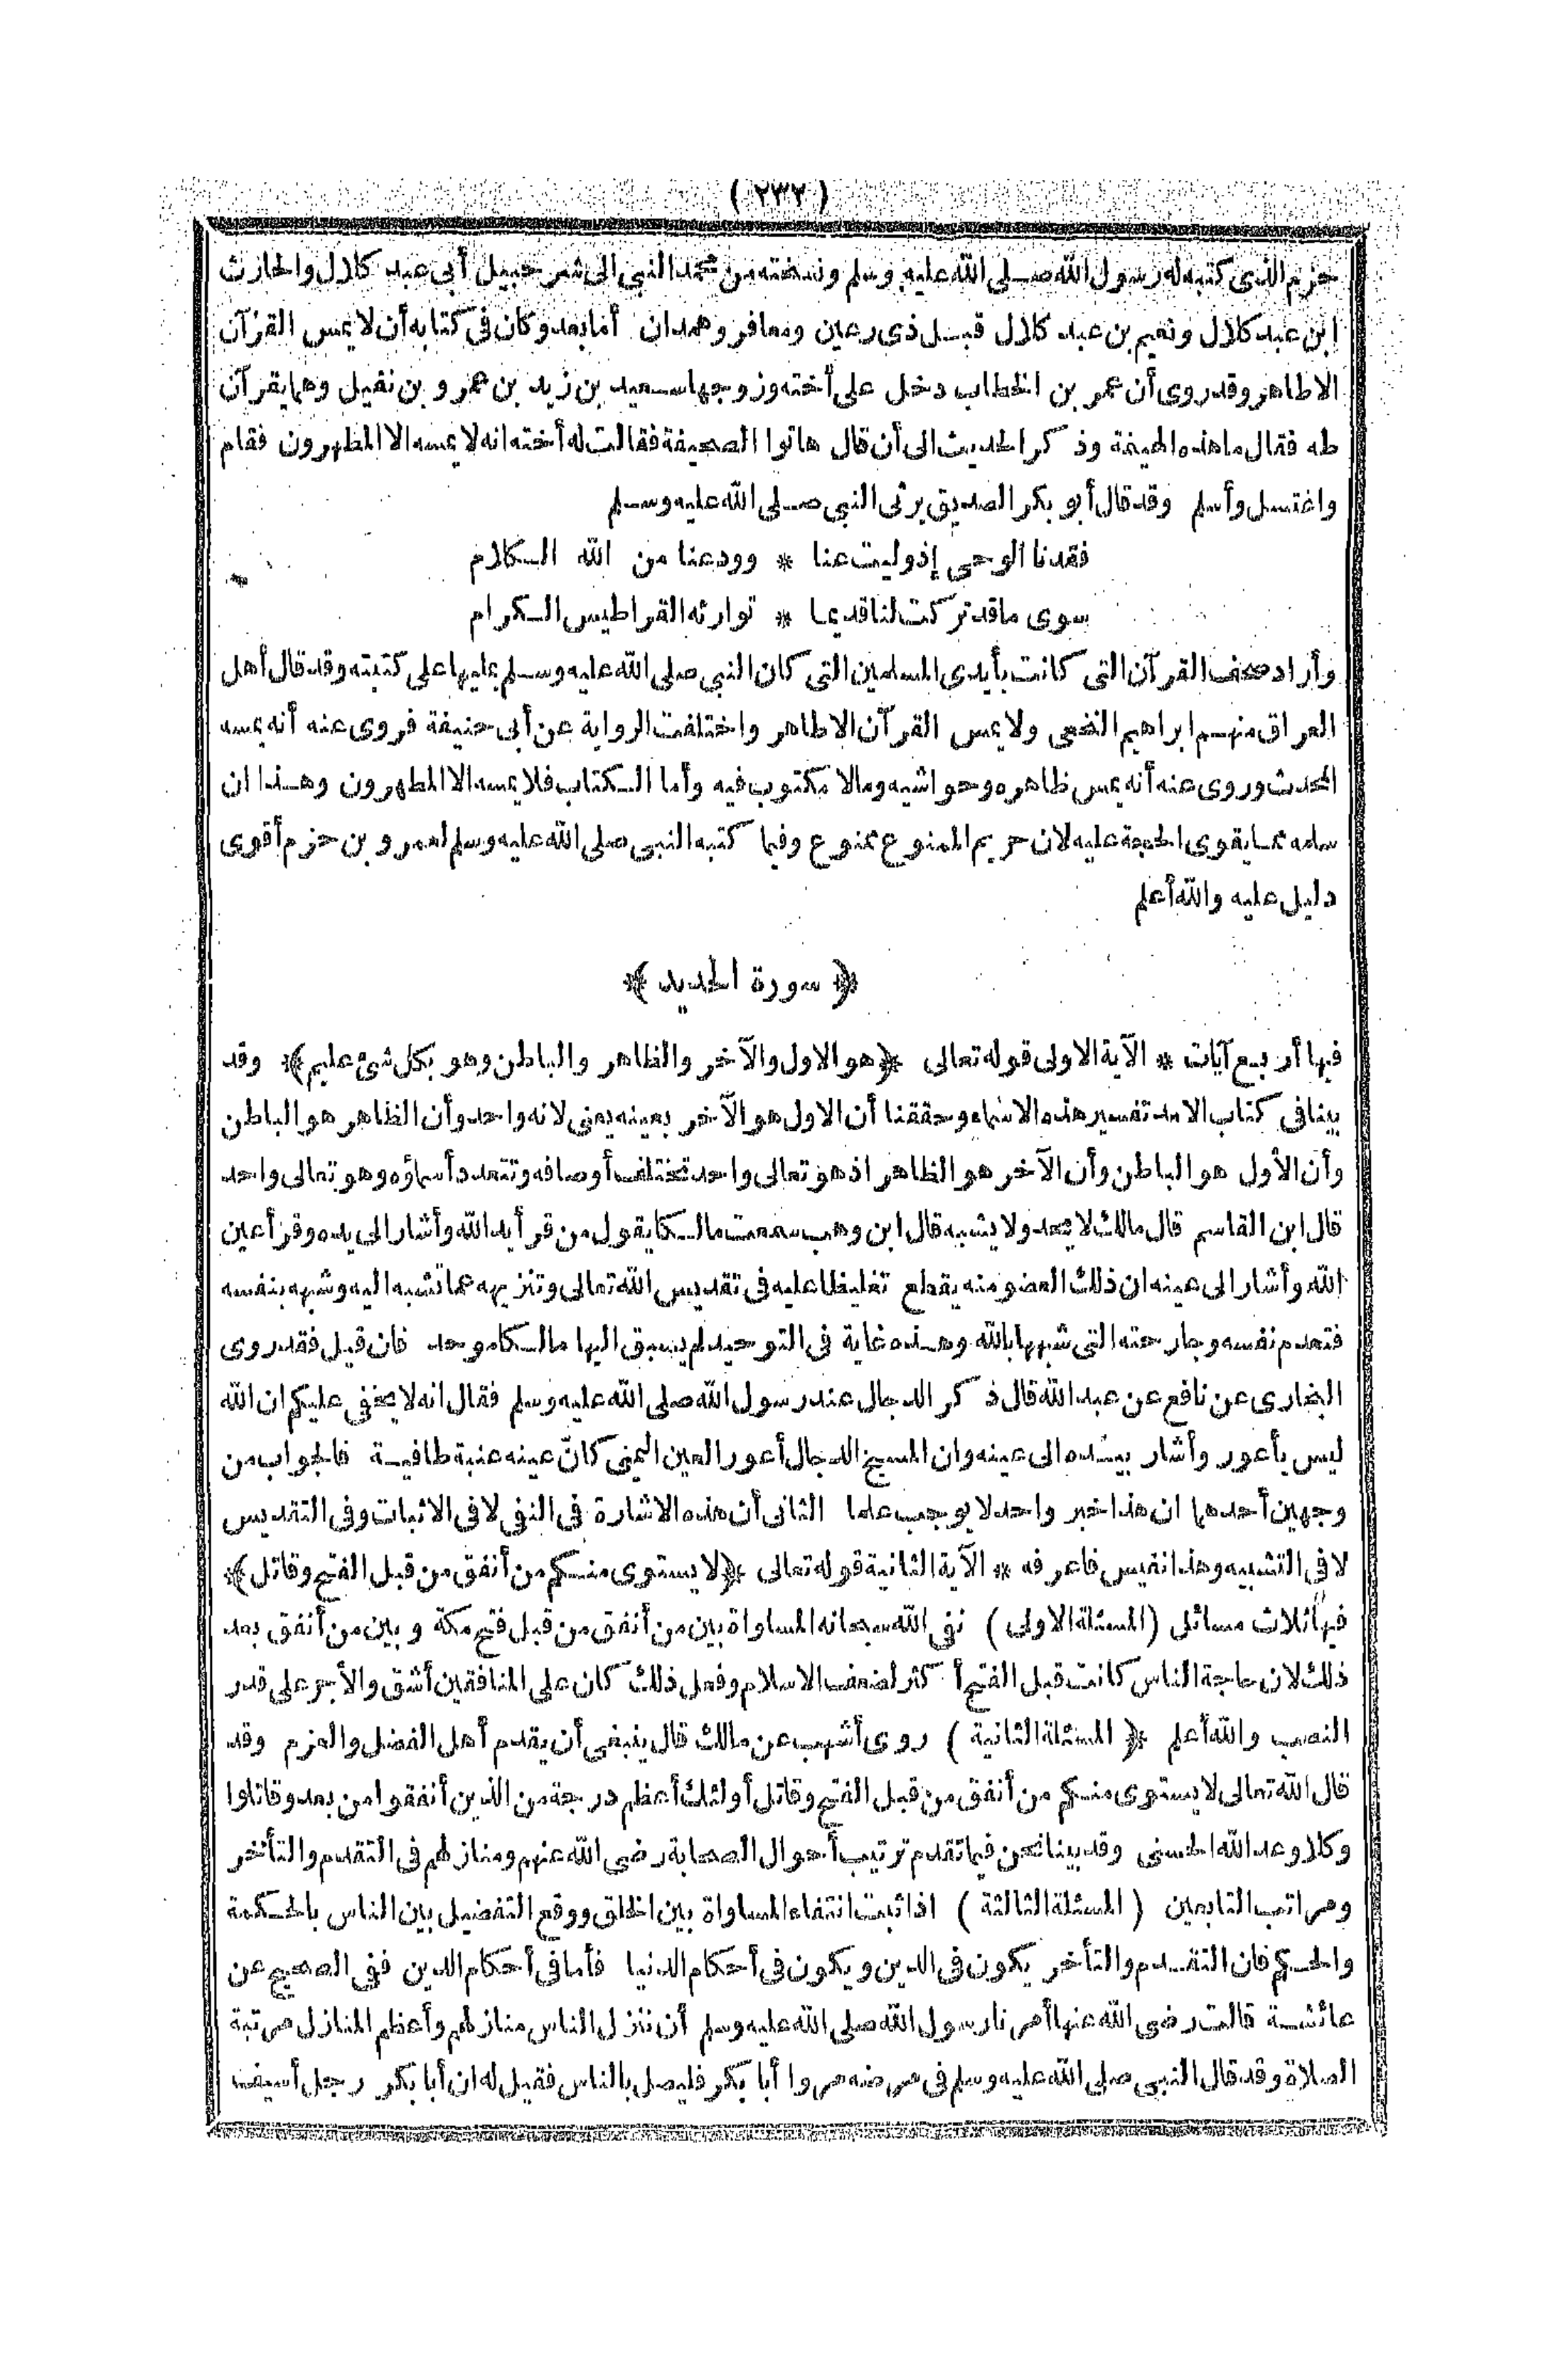 ( ٢٣٢ )
حزم الذى كتبه له رسول الله صلى الله عليه وسلم ونسخته من محمد النبى الى شر حبيل أبى عبد كلال والحارث
ابن عبد كلال ونعيم بن عبد كلال قبل ذى رعين ومعافر وهمدان أما بعد وكان فى كتابه أن لا يمس القرآن
الا طاهر وقد روى أن عمر بن الخطاب دخل على أخته وزوجها سعيد بن زيد بن عمرو بن نفيل وهما يقرآن
طه فقال ما هذه الهينمة وذكر الحديث الى أن قال هاتوا الصحيفة فقالت له أخته انه لا يمسه الا المطهرون فقام
واغتسل وأسلم وقد قال أبو بكر الصديق يرثى النبى صلى الله عليه وسلم
فقدنا الوحى إذ وليت عنا * وودعنا من الله الكلام
سوى ما قد تركت لنا قديما * توارثه القراطيس الكرام
وأراد صحف القرآن التى كانت بأيدى المسلمين التى كان النبى صلى الله عليه وسلم يمليها على كتبته وقد قال أهل
العراق منهم ابراهيم النخعى ولا يمس القرآن الا طاهر واختلفت الرواية عن أبى حنيفة فروى عنه أنه يمسه
المحدث وروى عنه أنه يمس ظاهره وحواشيه وما لا مكتوب فيه وأما الكتاب فلا يمسه الا المطهرون وهذا ان
سلمه مما يقوى الحجة عليه لان حريم الممنوع ممنوع وفيما كتبه النبى صلى الله عليه وسلم لعمرو بن حزم أقوى
دليل عليه والله أعلم
﴿ سورة الحديد ﴾
فيها أربع آيات * الآية الاولى قوله تعالى ﴿هو الاول والآخر والظاهر والباطن وهو بكل شئ عليم﴾ وقد
بينا فى كتاب الامد تفسير هذه الاسماء وحققنا أن الاول هو الآخر بعينه يعنى لانه واحد وأن الظاهر هو الباطن
وأن الأول هو الباطن وأن الآخر هو الظاهر اذ هو تعالى واحد تختلف أوصافه وتتعدد أسماؤه وهو تعالى واحد
قال ابن القاسم قال مالك لا يحد ولا يشبه قال ابن وهب سمعت مالكا يقول من قرأ يد الله وأشار الى يده وقرأ عين
الله وأشار الى عينه ان ذلك العضو منه يقطع تغليظا عليه فى تقديس الله تعالى وتنزيهه عما تشبه اليه وشبهه بنفسه
فتعدم نفسه وجارحته التى شبهها بالله وهذه غاية فى التوحيد لم يسبق اليها مالكا موحد فان قيل فقد روى
البخارى عن نافع عن عبد الله قال ذكر الدجال عند رسول الله صلى الله عليه وسلم فقال انه لا يخفى عليكم ان الله
ليس بأعور وأشار بيده الى عينه وان المسيح الدجال أعور العين اليمنى كانّ عينه عنبة طافية فالجواب من
وجهين أحدهما ان هذا خبر واحد لا يوجب علما الثانى أن هذه الاشارة فى النفى لا فى الاثبات وفى التقديس
لا فى التشبيه وهذا نفيس فاعرفه * الآية الثانية قوله تعالى ﴿لا يستوى منكم من أنفق من قبل الفتح وقاتل﴾
فيها ثلاث مسائل (المسئلة الاولى) نفى الله سبحانه المساواة بين من أنفق من قبل فتح مكة وبين من أنفق بعد
ذلك لان حاجة الناس كانت قبل الفتح أكثر لضعف الاسلام وفعل ذلك كان على المنافقين أشق والأجر على قدر
النصب والله أعلم ﴿ المسئلة الثانية ) روى أشهب عن مالك قال ينبغى أن يقدم أهل الفضل والعزم وقد
قال الله تعالى لا يستوى منكم من أنفق من قبل الفتح وقاتل أولئك أعظم درجة من الذين أنفقوا من بعد وقاتلوا
وكلا وعد الله الحسنى وقد بينا نحن فيما تقدم ترتيب أحوال الصحابة رضى الله عنهم ومنازلهم فى التقدم والتأخر
ومراتب التابعين (المسئلة الثالثة) اذا ثبت انتفاء المساواة بين الخلق ووقع التفضيل بين الناس بالحكمة
والحكم فان التقدم والتأخر يكون فى الدين ويكون فى أحكام الدنيا فأما فى أحكام الدين ففى الصحيح عن
عائشة قالت رضى الله عنها أمرنا رسول الله صلى الله عليه وسلم أن ننزل الناس منازلهم وأعظم المنازل مرتبة
الصلاة وقد قال النبى صلى الله عليه وسلم فى مرضه مروا أبا بكر فليصل بالناس فقيل له ان أبا بكر رجل أسيف